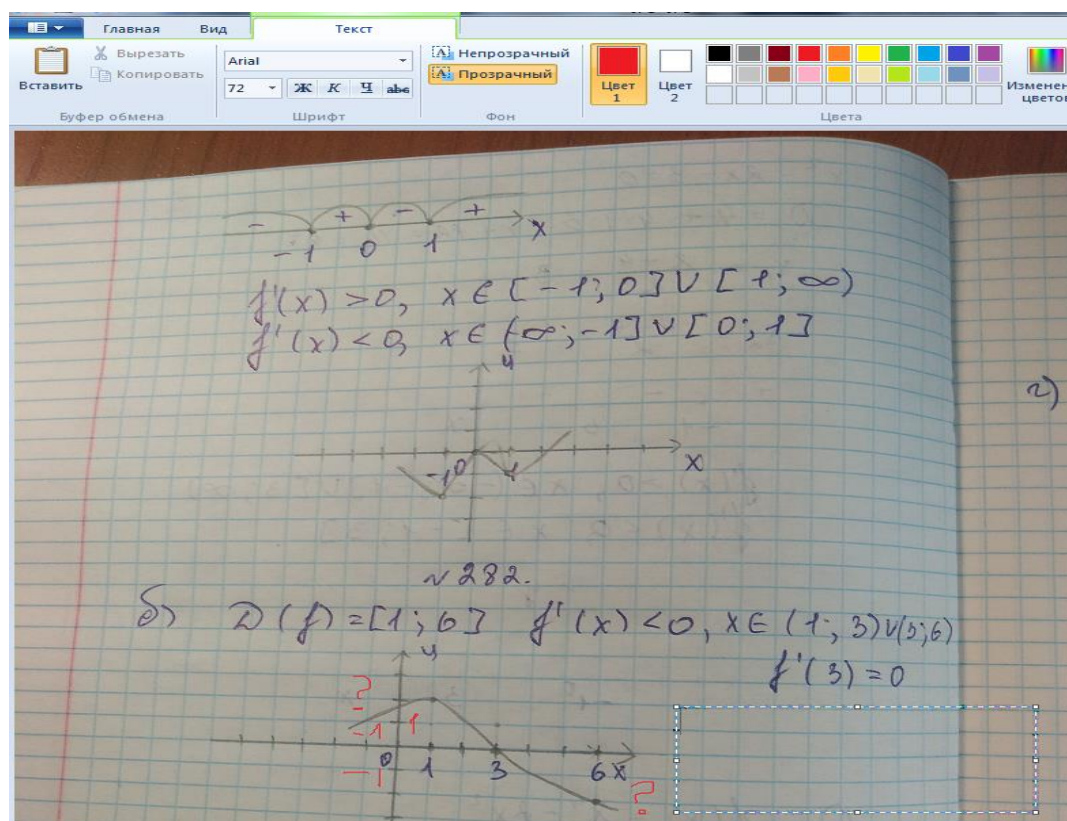 Главная Вид Текст
Вставить
Вырезать
Копировать
Буфер обмена
Arial
72 Ж К Ч abc
Шрифт
Непрозрачный
Прозрачный
Фон
Цвет 1
Цвет 2
Цвета
- + - + x
-1 0 1
f'(x) > 0, x ∈ [-1; 0] ∪ [1; ∞)
f'(x) < 0, x ∈ (-∞; -1] ∪ [0; 1]
y
-1 0 1 x
№ 282.
б) D(f) = [1; 6] f'(x) < 0, x ∈ (1; 3) ∪ (3; 6)
f'(3) = 0
г)
y
?
-1 1
0 1 3 6 x
-1
?